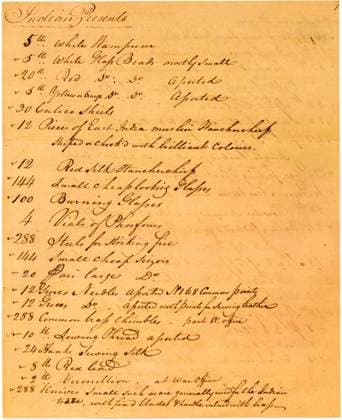 Indian Presents
5 lb White Wampum
5 lb White Glass Beads mostly small
20 lb Red Do. Do Assorted
5 lb Yellow or Orange Do Do Assorted
30 Calico Shirts
12 Pieces of East India muslin Hanckerchiefs
striped or check'd with brilliant Colours.
12 Red Silk Hanckerchiefs
144 Small cheap looking Glasses
100 Burning Glasses
4 Vials of Phosforus
288 Steels for striking fire
144 Small cheap Scizors
20 Pair large Do
12 Groces Needles Assorted No. 1 to 8 Common points
12 Groces Do. Assorted with points for sewing leather
288 Common brass thimbles - part W. office
10 lb Sewing Thread assorted
24 Hanks Sewing Silk
8 lb Red Lead
2 lb Vermillion - at War Office
288 Knives Small such as are generally used for the Indian
trade, with fix'd Blades & handles inlaid with brass